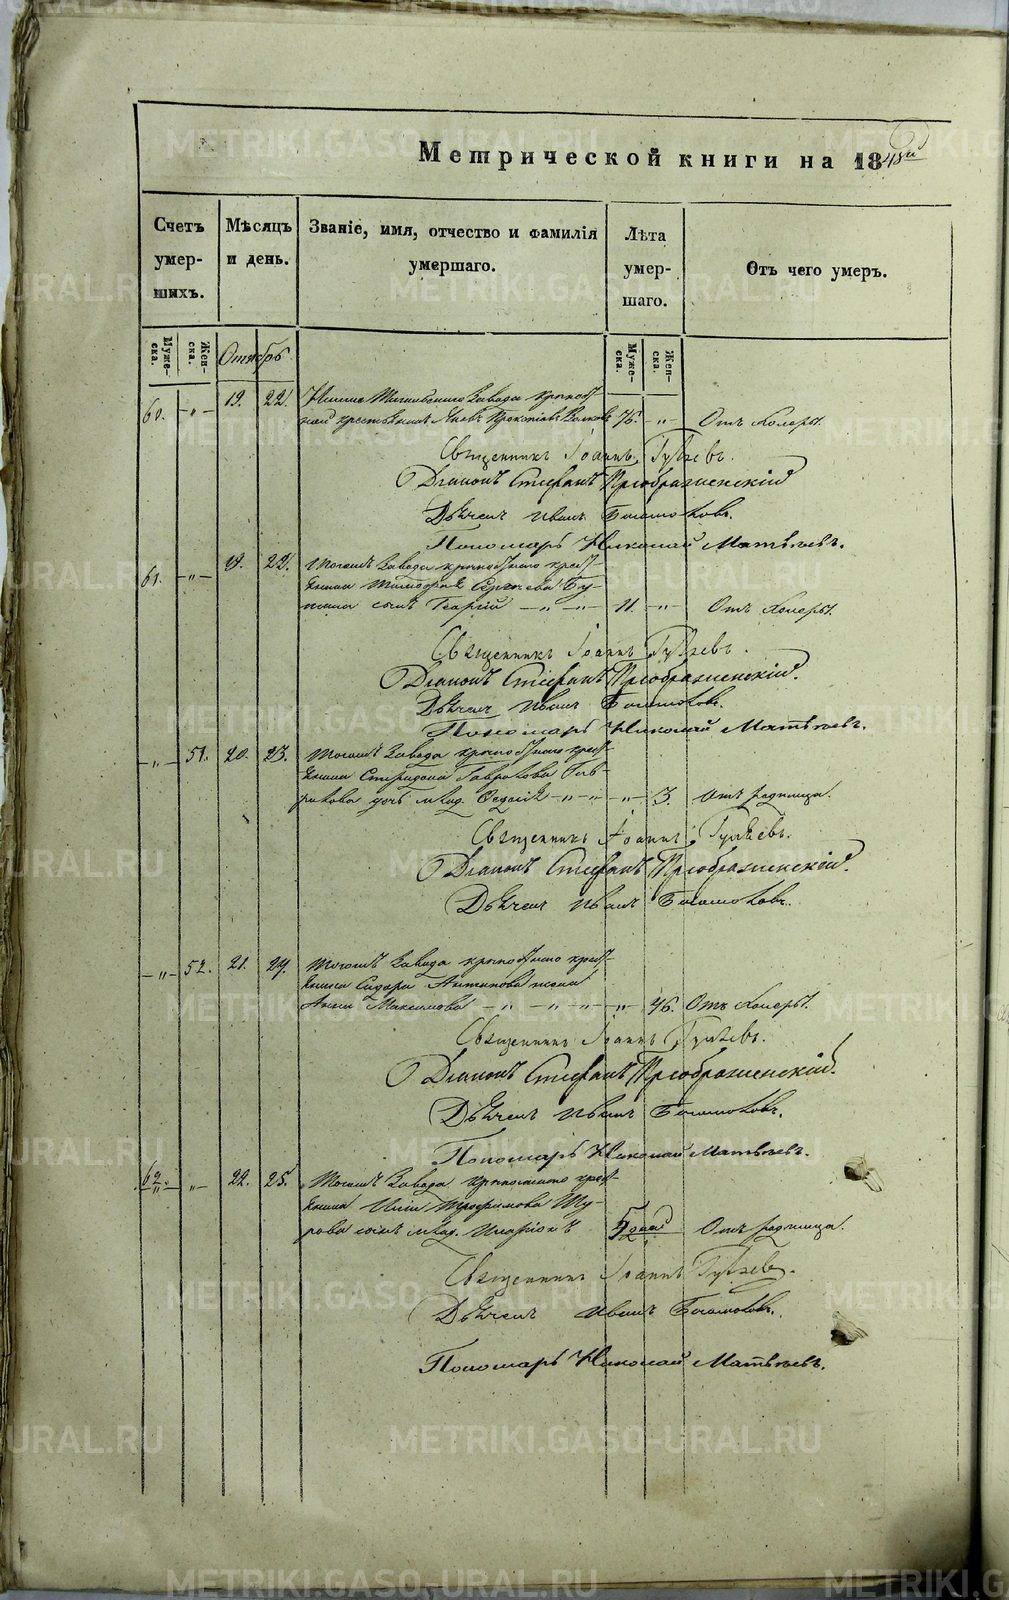 Метрической книги на 1848й
Счетъ умер- шихъ.
Мѣсяцъ и день.
Званіе, имя, отчество и фамилія умершаго.
Лѣта умер- шаго.
Отъ чего умеръ.
Муже- ска.
Жен- ска.
Октябрь
Муже- ска.
Жен- ска.
60. -"- 19. 22. Нижне Завода крѣпост-
ной крестьянинъ Прокопіевъ Волковъ 76. -"- Отъ Холеры.
Священникъ Іоаннъ
Діаконъ Стефанъ Преображенскій
Дьячекъ Иванъ Богомоловъ.
Пономарь Николай Матвѣевъ.
61. -"- 19. 22. Тогожъ Завода крѣпостнаго крест-
янина Сергѣева
сынъ Георгій -"- -"- 11. -"- Отъ Холеры.
Священникъ Іоаннъ
Діаконъ Стефанъ Преображенскій.
Дьячекъ Иванъ Богомоловъ.
Пономарь Николай Матвѣевъ.
-"- 51. 20. 23. Тогожъ Завода крѣпостнаго крест-
янина Спиридона Гаврилова Гав-
рилова дочь млад. -"- -"- -"- 3. Отъ родимца.
Священникъ Іоаннъ
Діаконъ Стефанъ Преображенскій.
Дьячекъ Иванъ Богомоловъ.
-"- 52. 21. 24. Тогожъ Завода крѣпостнаго крест-
янина Сидора Антипова жена
Анна Максимова -"- -"- -"- -"- 46. Отъ Холеры.
Священникъ Іоаннъ
Діаконъ Стефанъ Преображенскій.
Дьячекъ Иванъ Богомоловъ.
Пономарь Николай Матвѣевъ.
62. -"- 22. 25. Тогожъ Завода крѣпостнаго крест-
янина Трофимова Ту-
рова сынъ млад. Иларіонъ 5 дней Отъ родимца.
Священникъ Іоаннъ
Дьячекъ Иванъ Богомоловъ.
Пономарь Николай Матвѣевъ.
METRIKI.GASO-URAL.RU